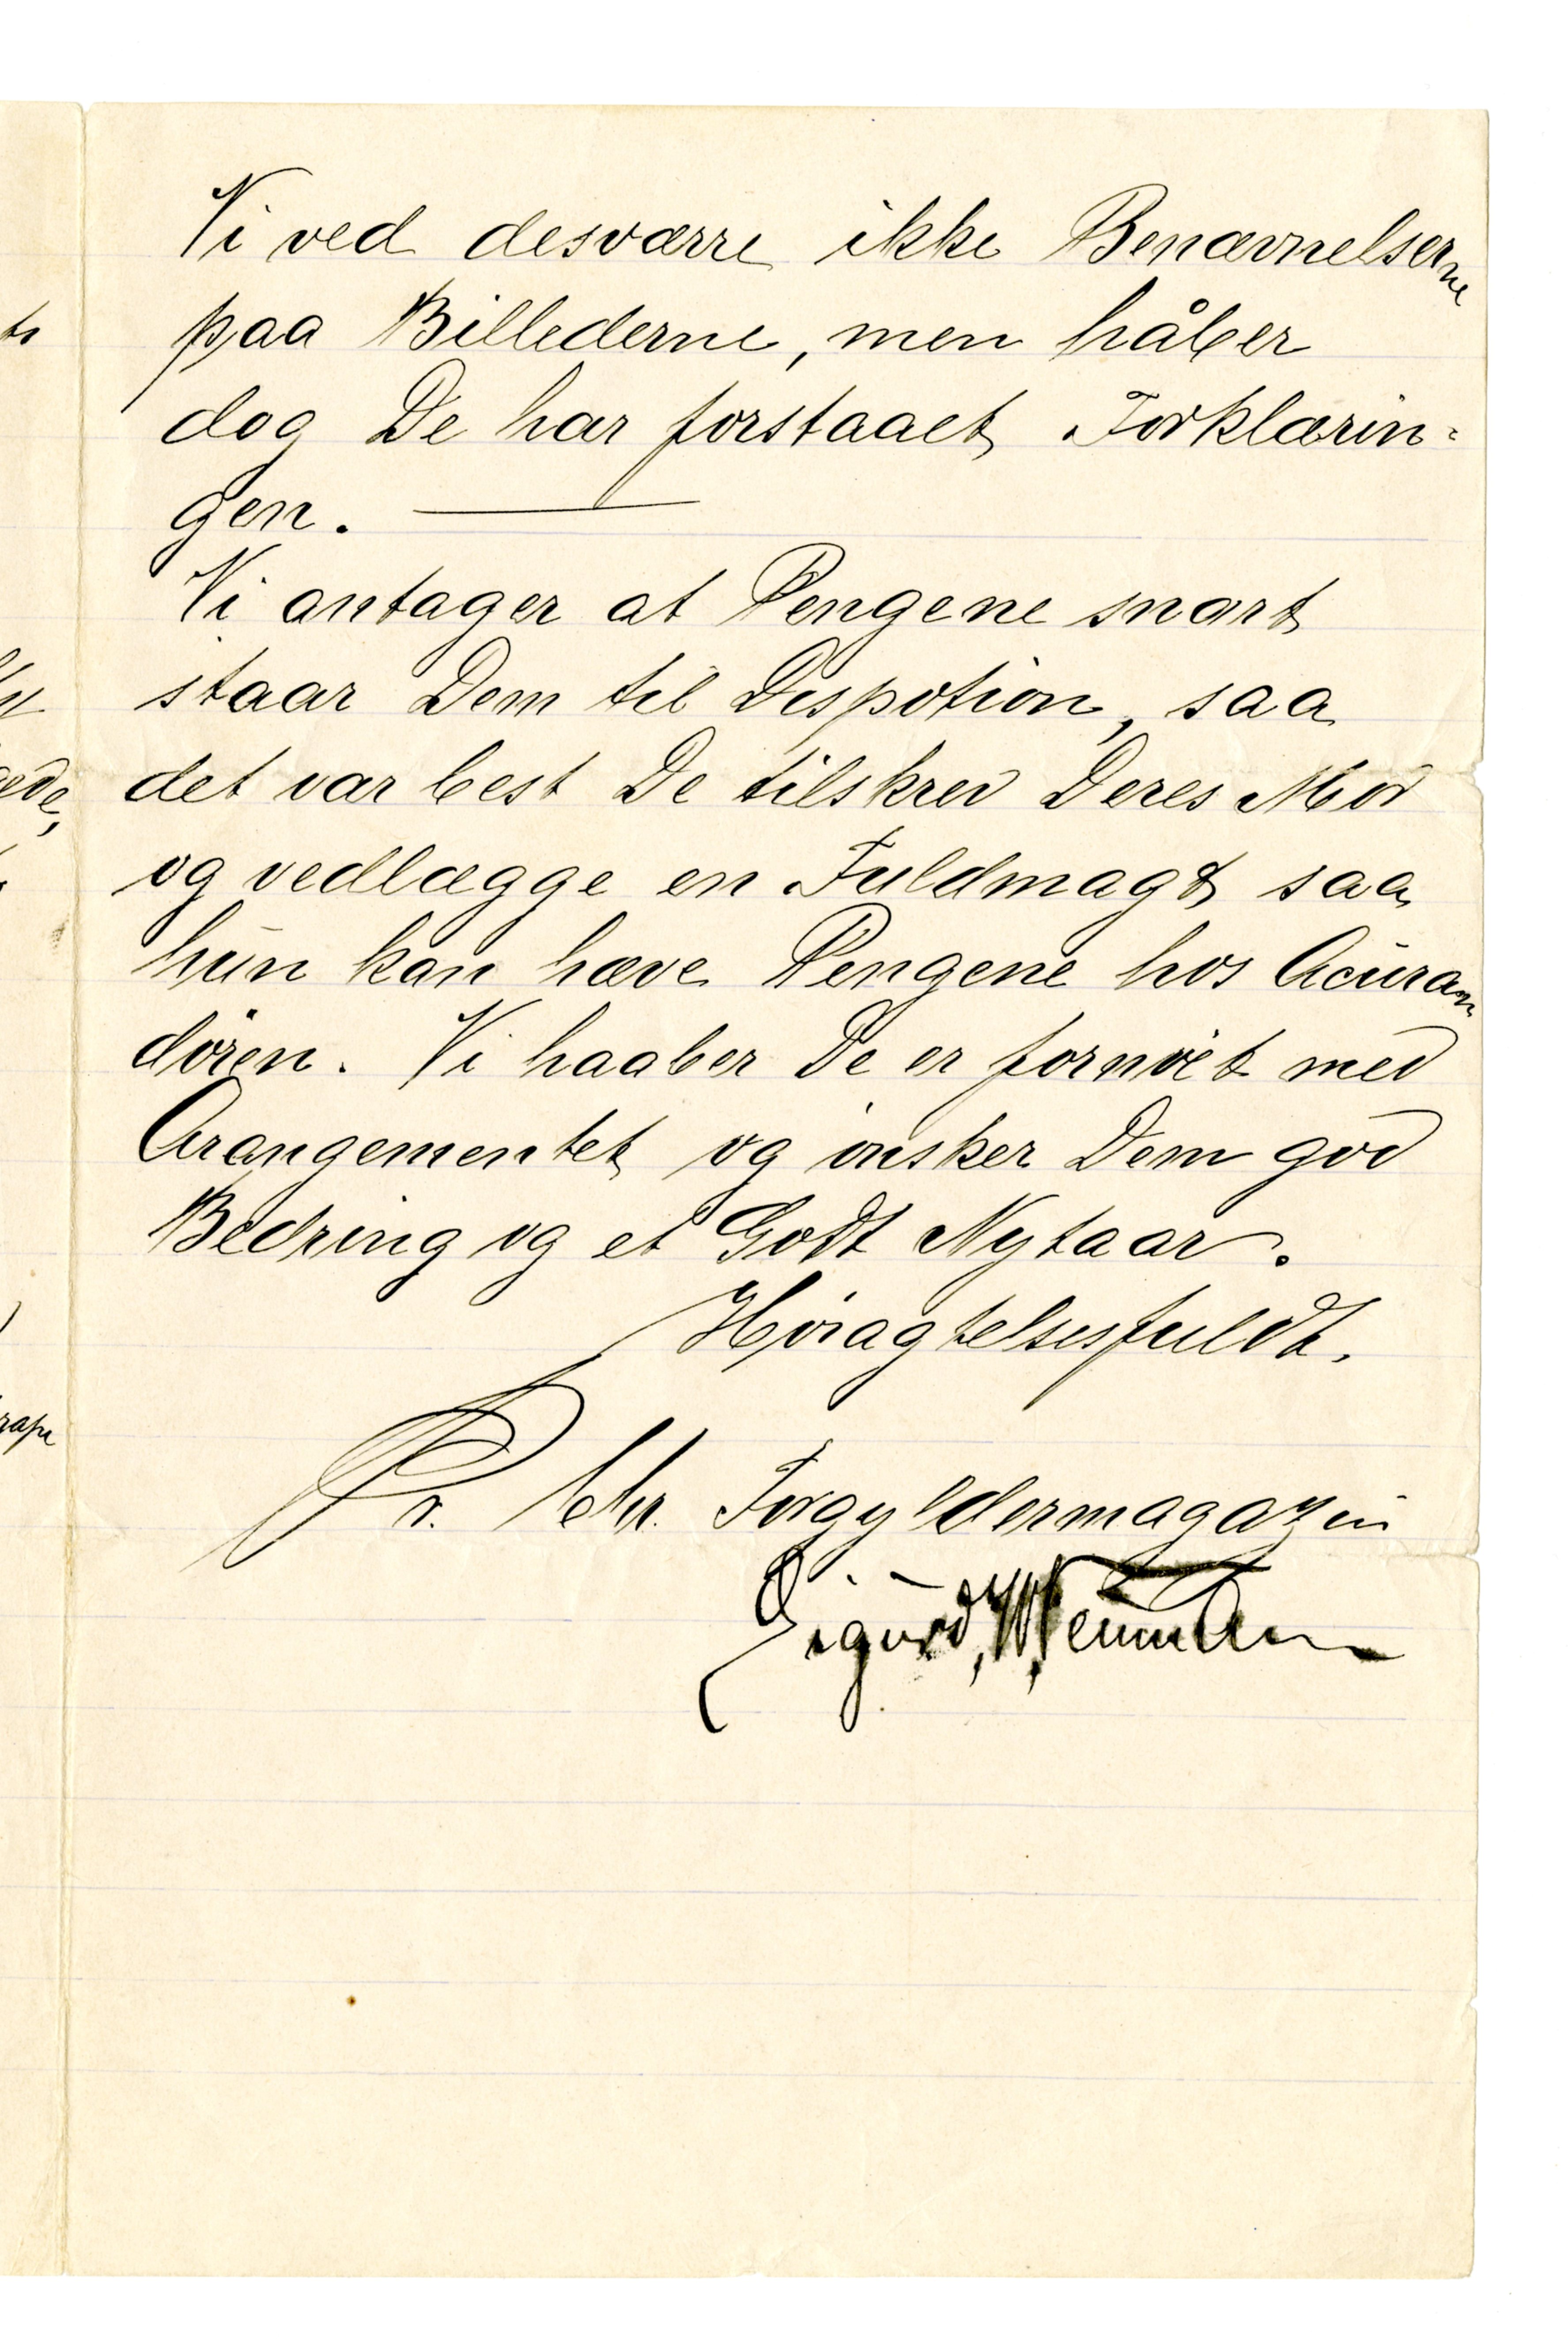 Vi ved desværre ikke Benævnelserne
paa Billederne, men håber
dog De har forstaaet Forklarin=
gen. —
Vi antager at Pengene snart
staar Dem til Dispotion, saa
det var best De tilskrev Deres Mor
og vedlægge en Fuldmagt saa
hun kan hæve Pengene hos Acuran
dören. Vi haaber De er fornöiet med
Arangementet og önsker Dem god
Bedring og et Godt Nytaar.
Höiagtelsesfuldt.
Pr. Chr. Forgyldermagazin
Sigurd